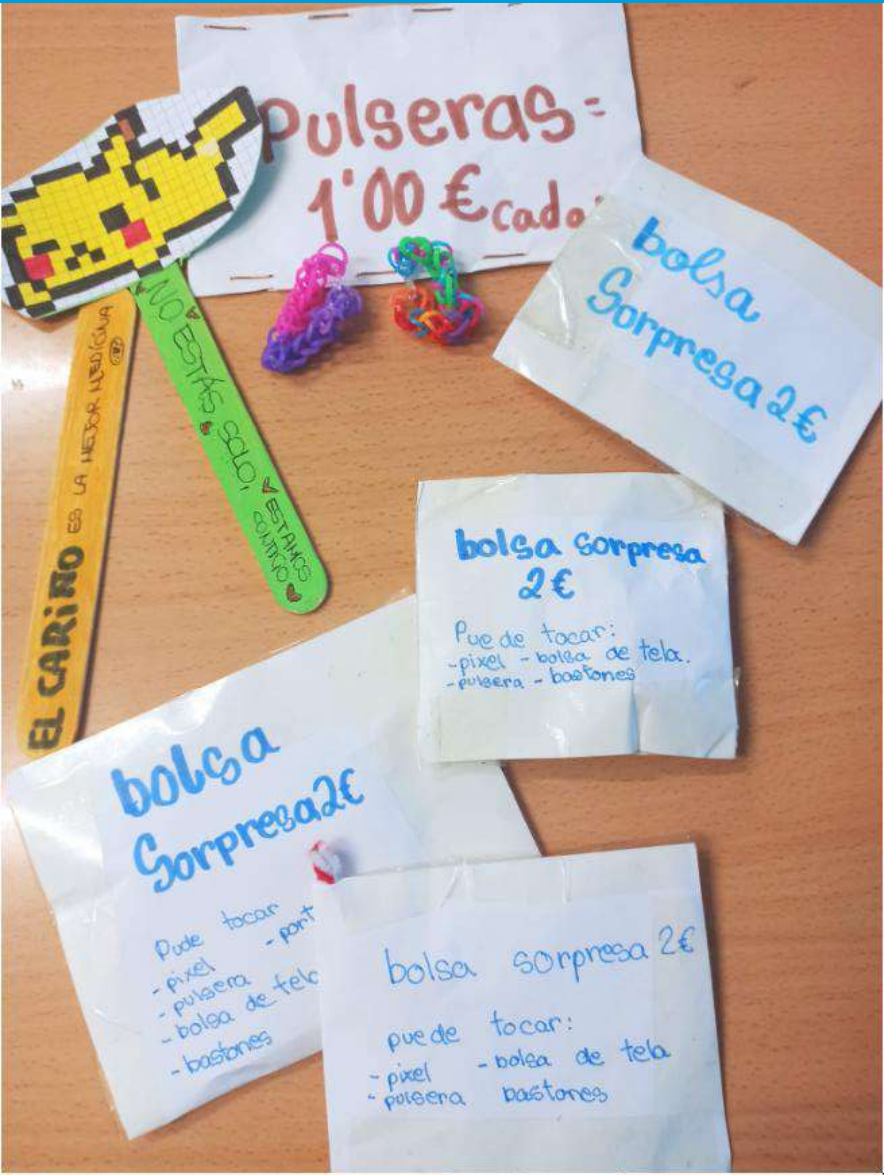 Pulseras =
1'00 € cada
bolsa
Sorpresa 2€
NO ESTÁS SOLO,
ESTAMOS
CONTIGO
EL CARIÑO ES LA MEJOR MEDICINA
bolsa sorpresa
2€
Puede tocar:
-pixel - bolsa de tela.
-pulsera - bastones
bolsa
Sorpresa 2€
Pude tocar
-pixel - port
-pulsera
-bolsa de tela
-bastones
bolsa sorpresa 2€
puede tocar:
-pixel - bolsa de tela
-pulsera bastones